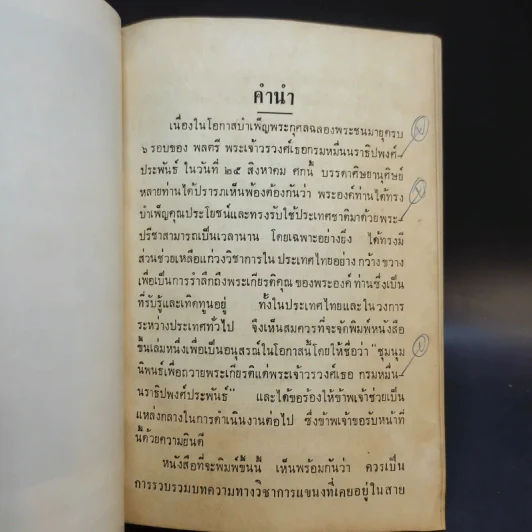 คำนำ
เนื่องในโอกาสบำเพ็ญพระกุศลฉลองพระชนมายุครบ
๖ รอบของ พลตรี พระเจ้าวรวงศ์เธอกรมหมื่นนราธิปพงศ์-
ประพันธ์ ในวันที่ ๒๕ สิงหาคม ศกนี้ บรรดาศิษยานุศิษย์
หลายท่านได้ปรารภเห็นพ้องต้องกันว่า พระองค์ท่านได้ทรง
บำเพ็ญคุณประโยชน์และทรงรับใช้ประเทศชาติมาด้วยพระ-
ปรีชาสามารถเป็นเวลานาน โดยเฉพาะอย่างยิ่ง ได้ทรงมี
ส่วนช่วยเหลือแก่วงวิชาการใน ประเทศไทยอย่าง กว้าง ขวาง
เพื่อเป็นการรำลึกถึงพระเกียรติคุณ ของพระองค์ ท่านซึ่งเป็น
ที่รับรู้และเทิดทูนอยู่ ทั้งในประเทศไทยและในวงการ
ระหว่างประเทศทั่วไป จึงเห็นสมควรที่จะจัดพิมพ์หนังสือ
ขึ้นเล่มหนึ่งเพื่อเป็นอนุสรณ์ในโอกาสนี้โดยให้ชื่อว่า "ชุมนุม
นิพนธ์เพื่อถวายพระเกียรติแด่พระเจ้าวรวงศ์เธอ กรมหมื่น-
นราธิปพงศ์ประพันธ์" และได้ขอร้องให้ข้าพเจ้าช่วยเป็น
แหล่งกลางในการดำเนินงานต่อไป ซึ่งข้าพเจ้าขอรับหน้าที่
นี้ด้วยความยินดี
หนังสือที่จะพิมพ์ขึ้นนี้ เห็นพร้อมกันว่า ควรเป็น
การรวบรวมบทความทางวิชาการแขนงที่เคยอยู่ในสาย